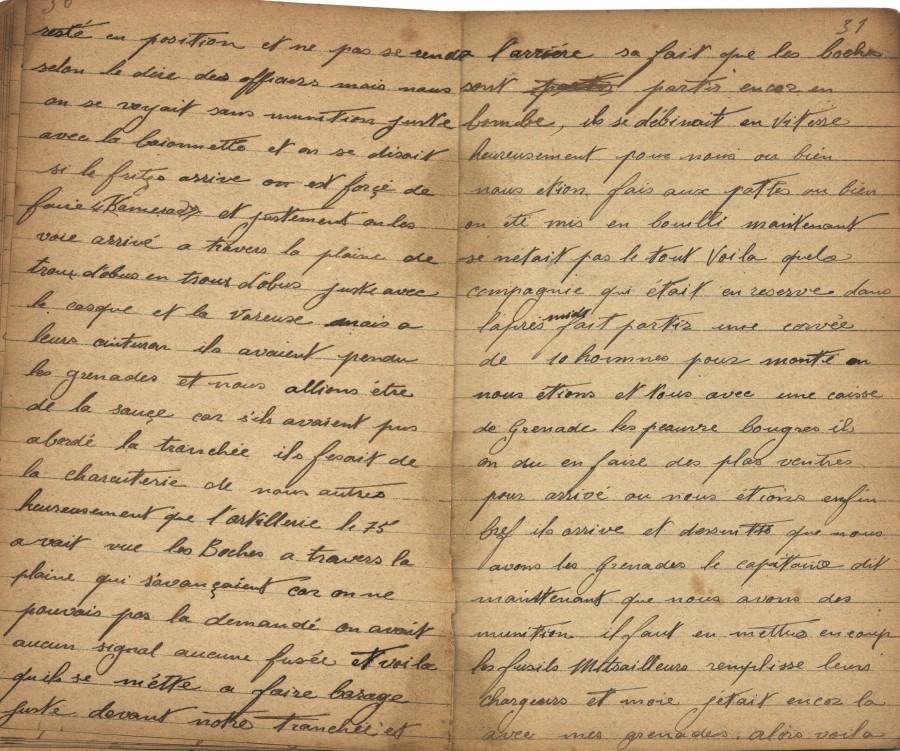 30
resté en position et ne pas se rendre
selon le dire des officiers mais nous
on se voyait sans munition juste
avec la baionnette et on se disait
si le fritze arrive on est forçé de
faire "Kamerad" et justement on les
voie arrivé a travers la plaine de
trou d'obus en trous d'obus juste avec
le casque et la vareuse mais a
leurs cinturon ils avaient pendu
les grenades et nous allions étre
de la sauçe car s'ils avaient pus
abordé la tranchée ils fesait de
la charcuterie de nous autres
heureusement que l'artillerie le 75
avait vue les Boches a travers la
plaine qui s'avançaient car on ne
pouvais pas la demandé on avait
aucun signal aucune fusée et voila
qu'ils se mette a faire barage
juste devant notre tranchée et
31
l'arriére sa fait que les boches
sont partir encor en
bombe, ils se débinait en vitesse
heureusement pour nous ou bien
nous étion fais aux pattes ou bien
on été mis en bouilli maintenant
se nétait pas le tout Voila quela
compagnie qui était en reserve dans
laprés midi fait partir une corvée
de 10 hommes pour monté ou
nous étions et tous avec une caisse
de Grenade les peauvre bougres ils
on du en faire des plas ventres
pour arrivé ou nous étions enfin
bref ils arrive et dessuitte que nous
avons les Grenades le capitaine dit
maintenant que nous avons des
munition il faut en mettre en coup
les fusils Mitrailleurs remplisse leurs
chargeurs et moie jétait encor la
avec mes grenades. alors voila